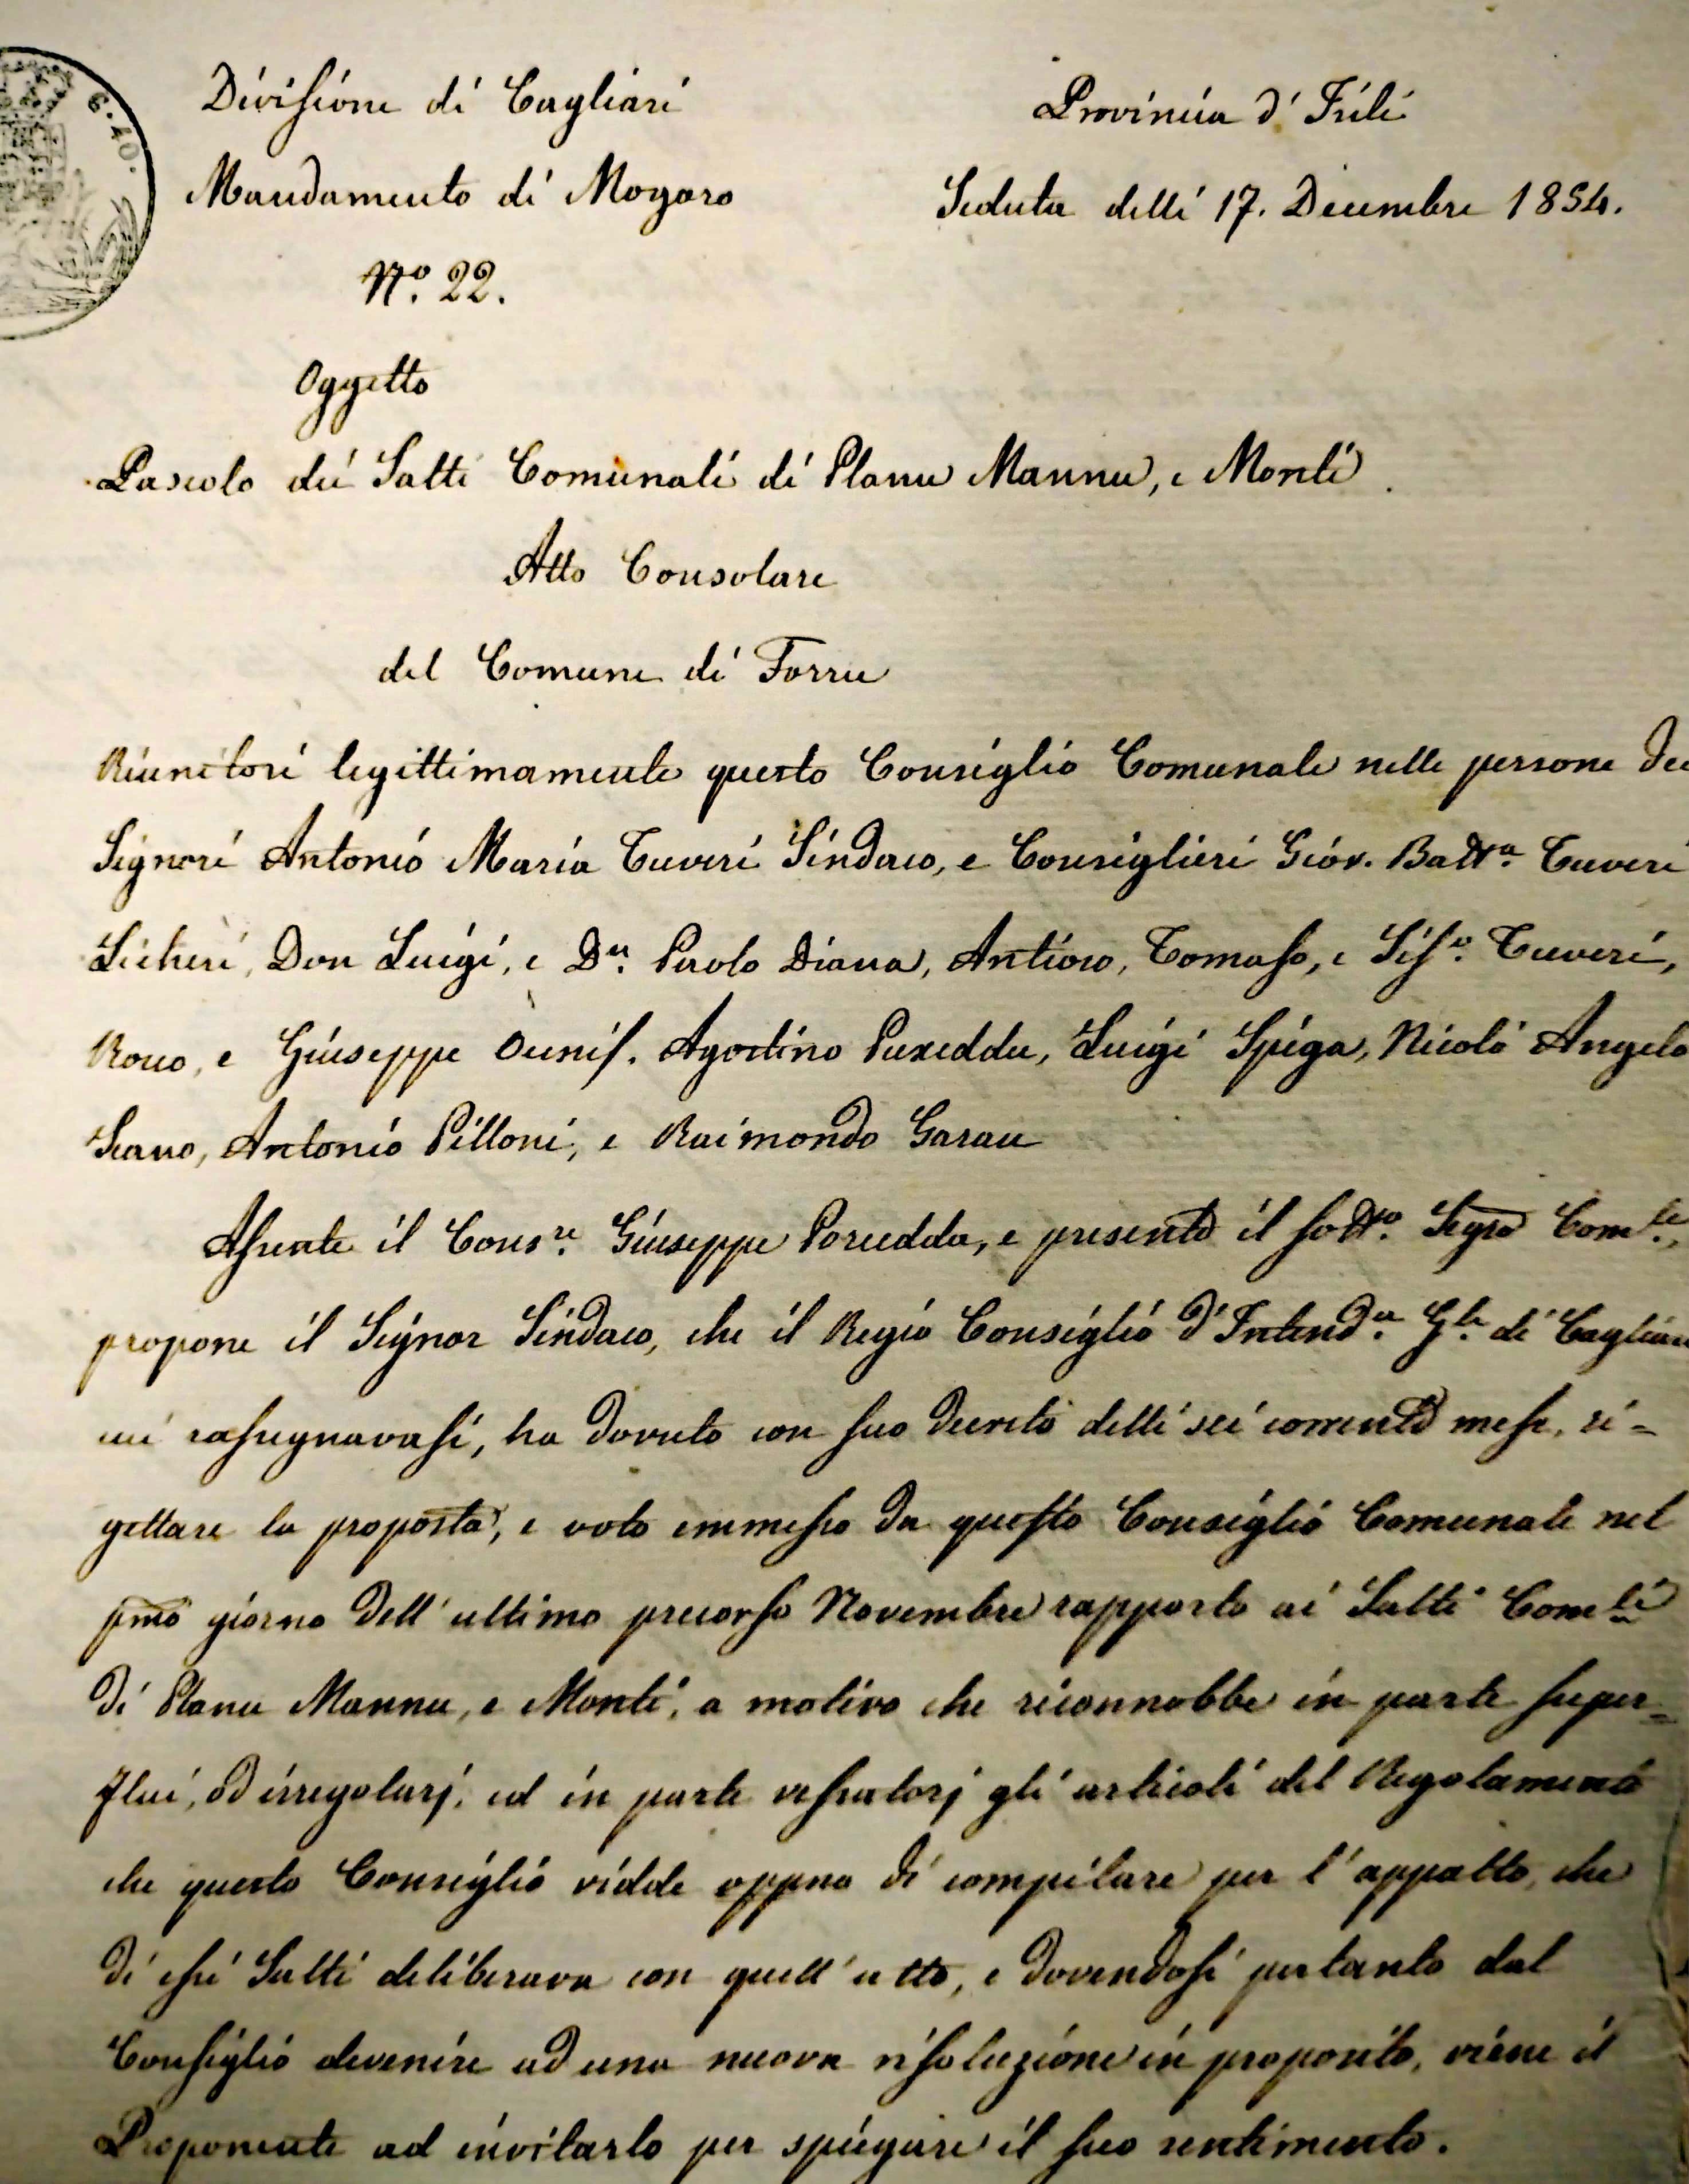 C. 40.
Divisione di Cagliari
Provincia d'Isili
Mandamento di Mogoro
Seduta delli 17. Decembre 1854.
N.º 22.
Oggetto
Pascolo dei Salti Comunali di Planu Mannu, e Monti.
Atto Consolare
del Comune di Forru
Riunitosi legittimamente questo Consiglio Comunale nelle persone dei
Signori Antonio Maria Tuveri Sindaco, e Consiglieri Giov. Batt.a Tuveri
Licheri, Don Luigi, e D.n Paolo Diana, Antioco, Tomaso, e Sis.o Tuveri,
Rocco, e Giuseppe Onnis. Agostino Puxeddu, Luigi Spiga, Nicolò Angelo
Scano, Antonio Pilloni, e Raimondo Garau
Assente il Cons.re Giuseppe Porcedda, e presente il sott.o Segro Com.le,
propone il Signor Sindaco, che il Regio Consiglio d'Intend.a G.le di Cagliari
cui rassegnavasi, ha dovuto con suo decreto delli sei corrente mese, ri=
gettare la proposta, e voto emmesso da questo Consiglio Comunale nel
pmo giorno dell'ultimo precorso Novembre rapporto ai Salti Com.li
di Planu Mannu, e Monti, a motivo che riconnobbe in parte super=
flui, od irregolarj, ed in parte vessatorj gli articoli del Regolamento
che questo Consiglio vidde oppno di compilare per l'appalto, che
di essi Salti deliberava con quell'atto, e dovendosi pertanto dal
Consiglio devenire ad una nuova risoluzione in proposito, viene il
Proponente ad invitarlo per spiegare il suo sentimento.